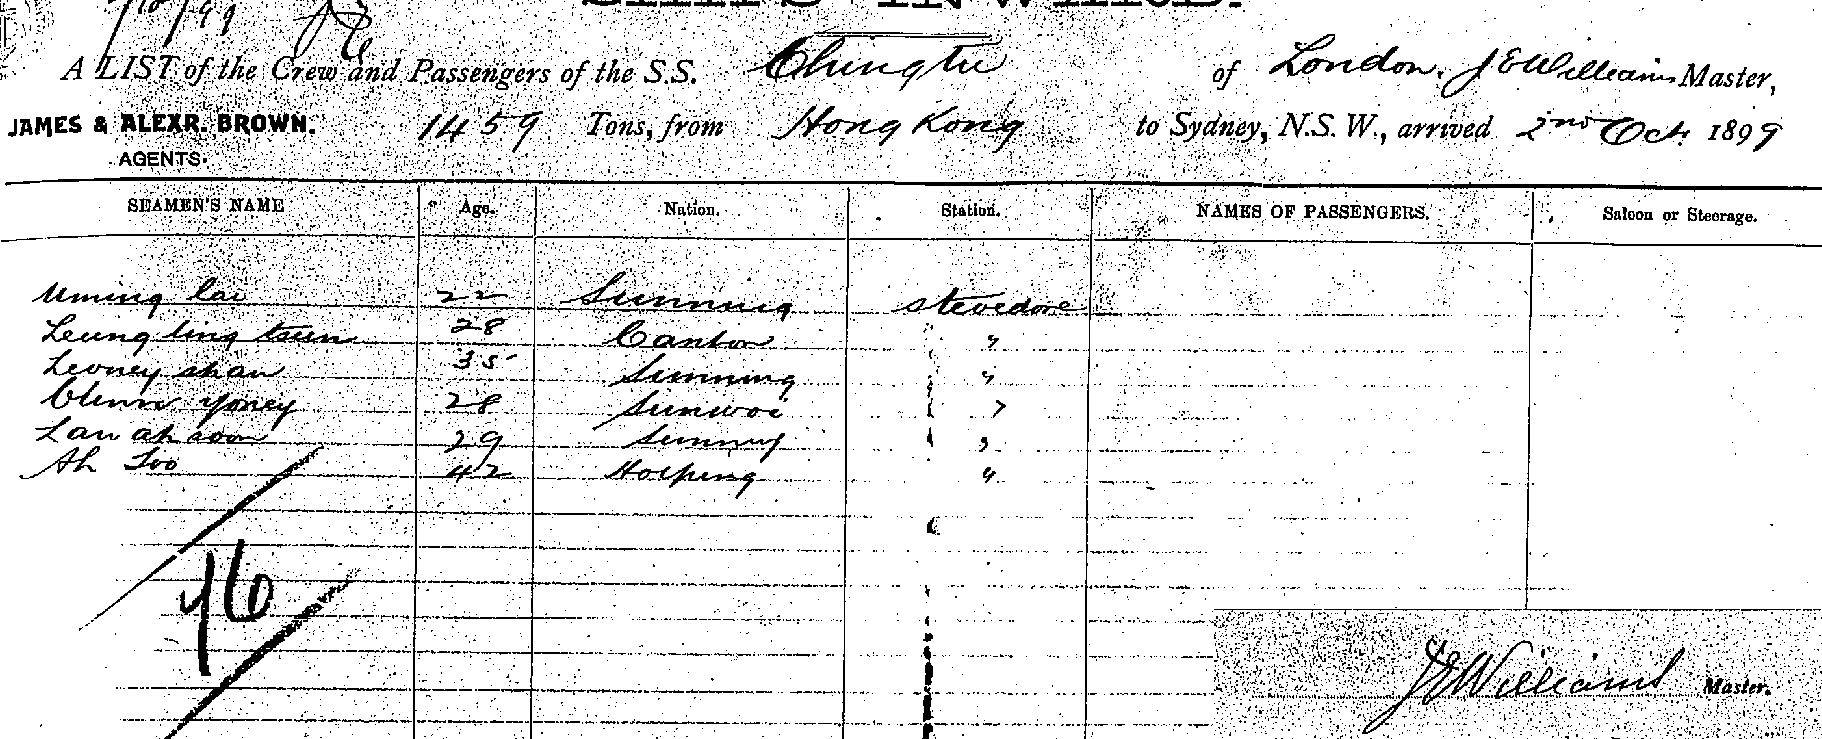 7/10/99
SHIPS INWARD.
A LIST of the Crew and Passengers of the S.S. Chingtu of London, J E Williams Master,
JAMES & ALEXR. BROWN. 1459 Tons, from Hong Kong to Sydney, N.S.W., arrived 2nd Oct. 1899
AGENTS.
SEAMEN'S NAME Age. Nation. Station. NAMES OF PASSENGERS. Saloon or Steerage.
lai 22 Sunning Stevedore
Leung ling tsun 28 Canton "
shan 35 Sunning "
28 Sunwoi "
Lau ah soon 29 Sunning "
Ah Soo 42 Hoiping "
J E Williams Master.